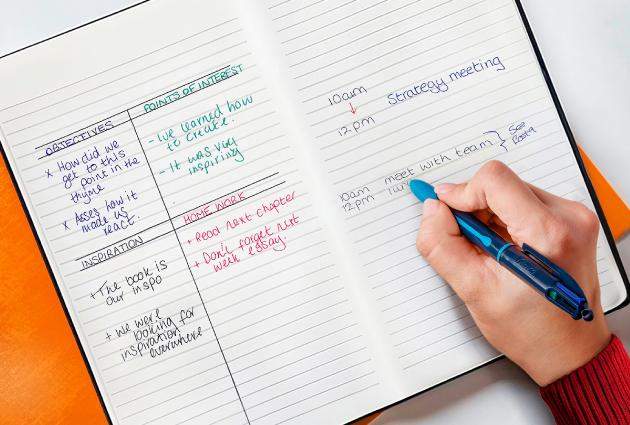 OBJECTIVES
x How did we
get to this
point in the
thyme
x Asses how it
made us
react.
POINTS OF INTEREST
- we learned how
to create.
- It was very
inspiring
INSPIRATION
+ The book is
our inspo
+ we were
looking for
inspiration for
everwhere
HOME WORK
+ Read next chapter
+ Don't forget next
week essay.
10am
12pm
Strategy meeting
10am
12pm
meet with team
See